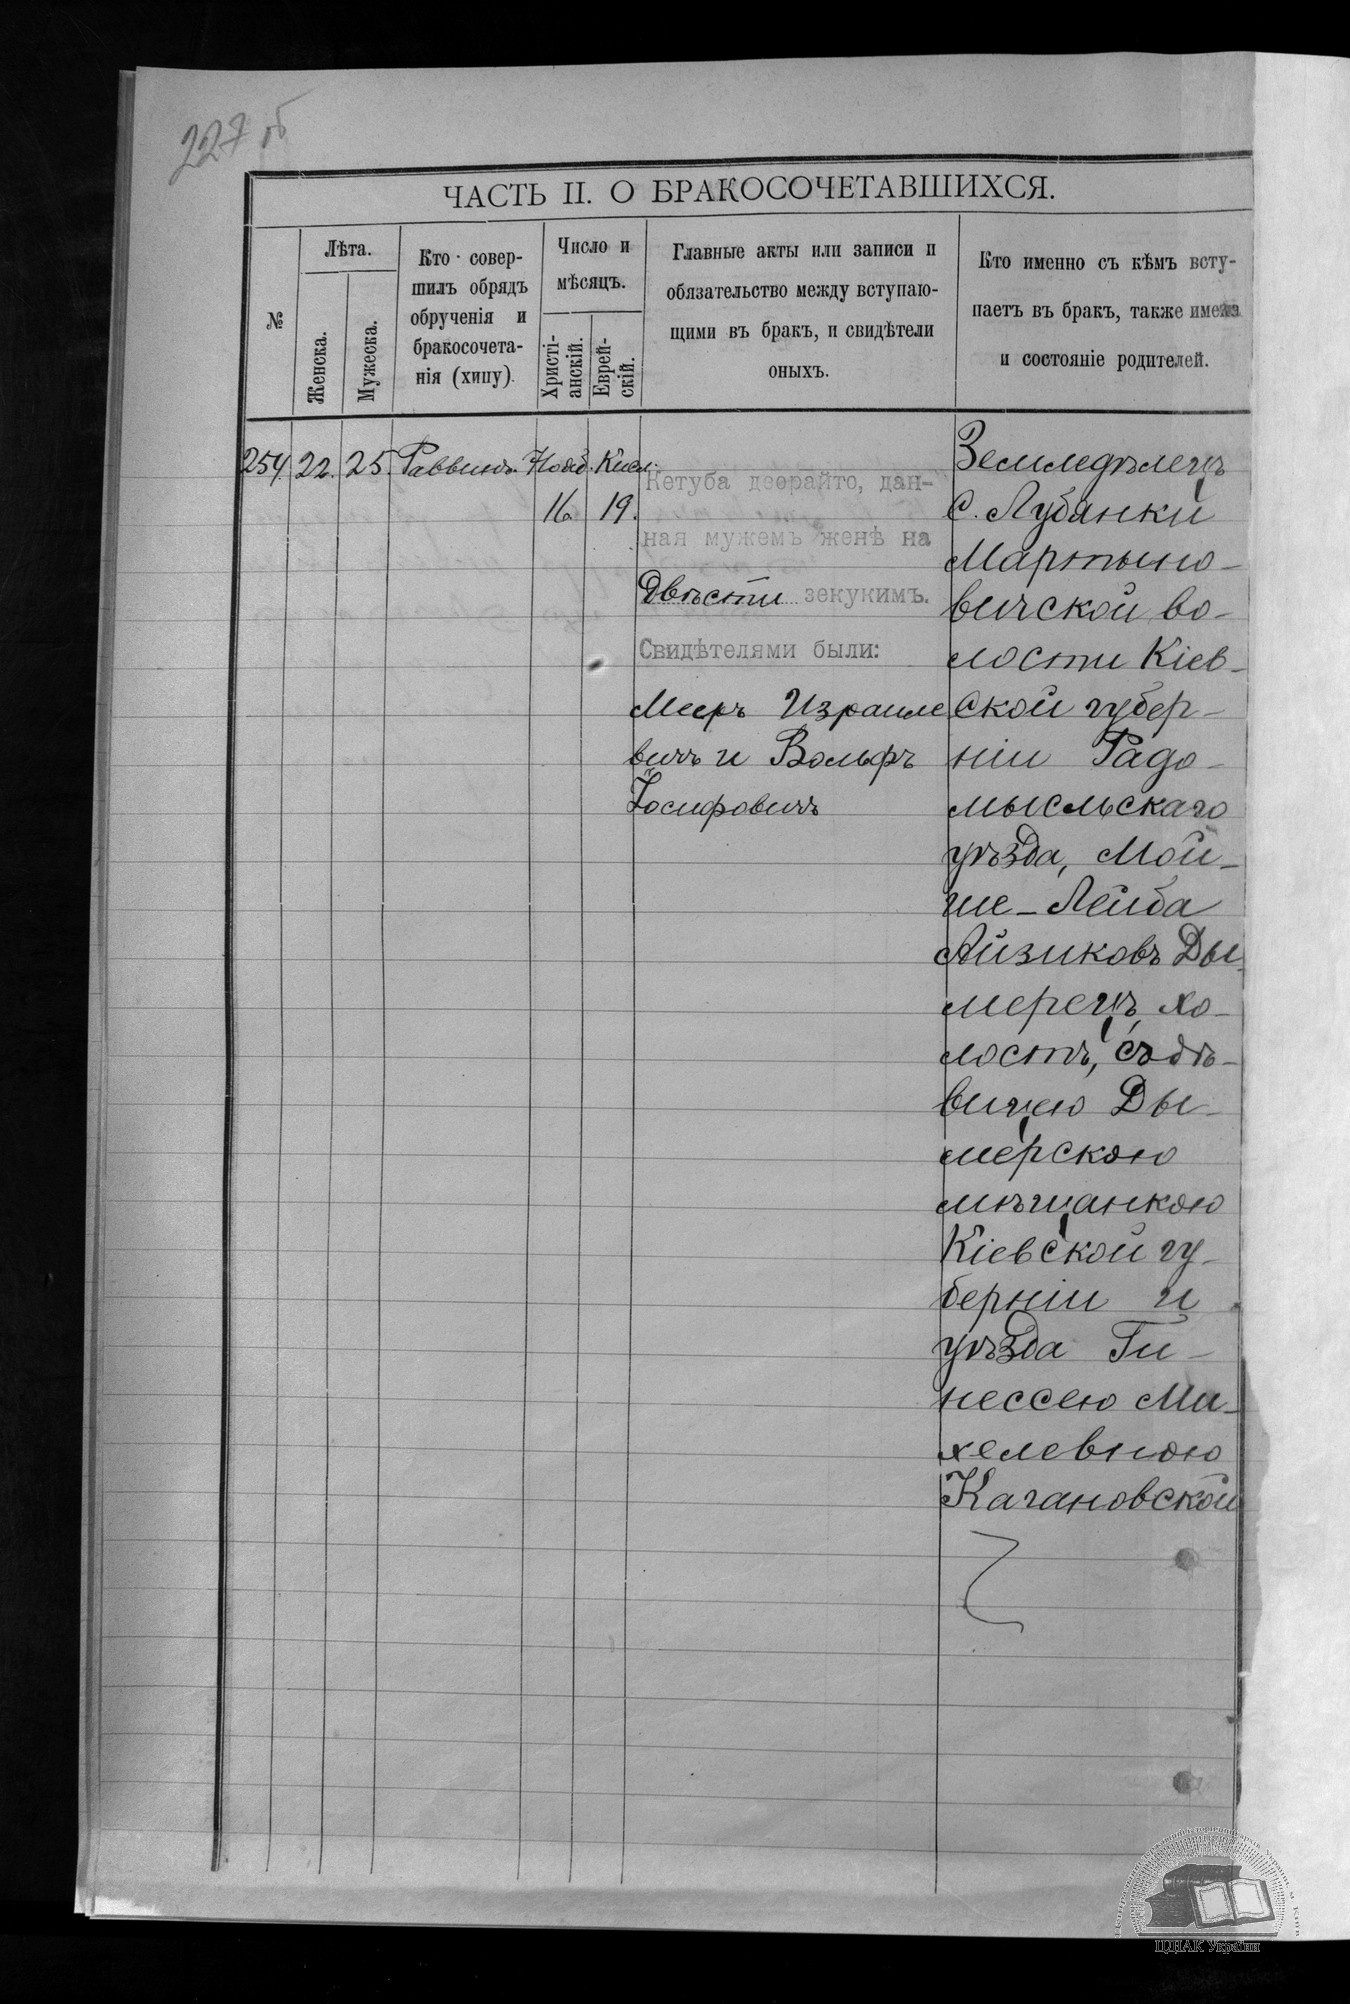 227 об
ЧАСТЬ II. О БРАКОСОЧЕТАВШИХСЯ.
№
Лѣта.
Женска.
Мужеска.
Кто совер-
шилъ обрядъ
обрученія и
бракосочета-
нія (хипу).
Число и
мѣсяцъ.
Христі-
анскій.
Еврей-
скій.
Главные акты или записи и
обязательство между вступаю-
щими въ бракъ, и свидѣтели
оныхъ.
Кто именно съ кѣмъ всту-
паетъ въ бракъ, также имена
и состояніе родителей.
254.
22.
25.
Раввинъ.
Нояб.
16.
Кисл.
19.
Кетуба деорайто, дан-
ная мужемъ женѣ на
Двѣсти зекукимъ.
Свидѣтелями были:
Мееръ Израиле
вичъ и Вольфъ
Іосифовичъ
Земледѣлецъ
с. Лубянки
Мартыно-
вичской во-
лости Кіев-
ской губер-
ніи Радо-
мысльскаго
уѣзда, Мой-
ше-Лейба
Айзиковъ Ды-
мерецъ, хо-
лостъ, съ дѣ-
вицею Ды-
мерскою
мѣщанкою
Кіевской гу-
берніи и
уѣзда Ги-
нессею Ми-
хелевною
Кагановской
ЦДІАК України